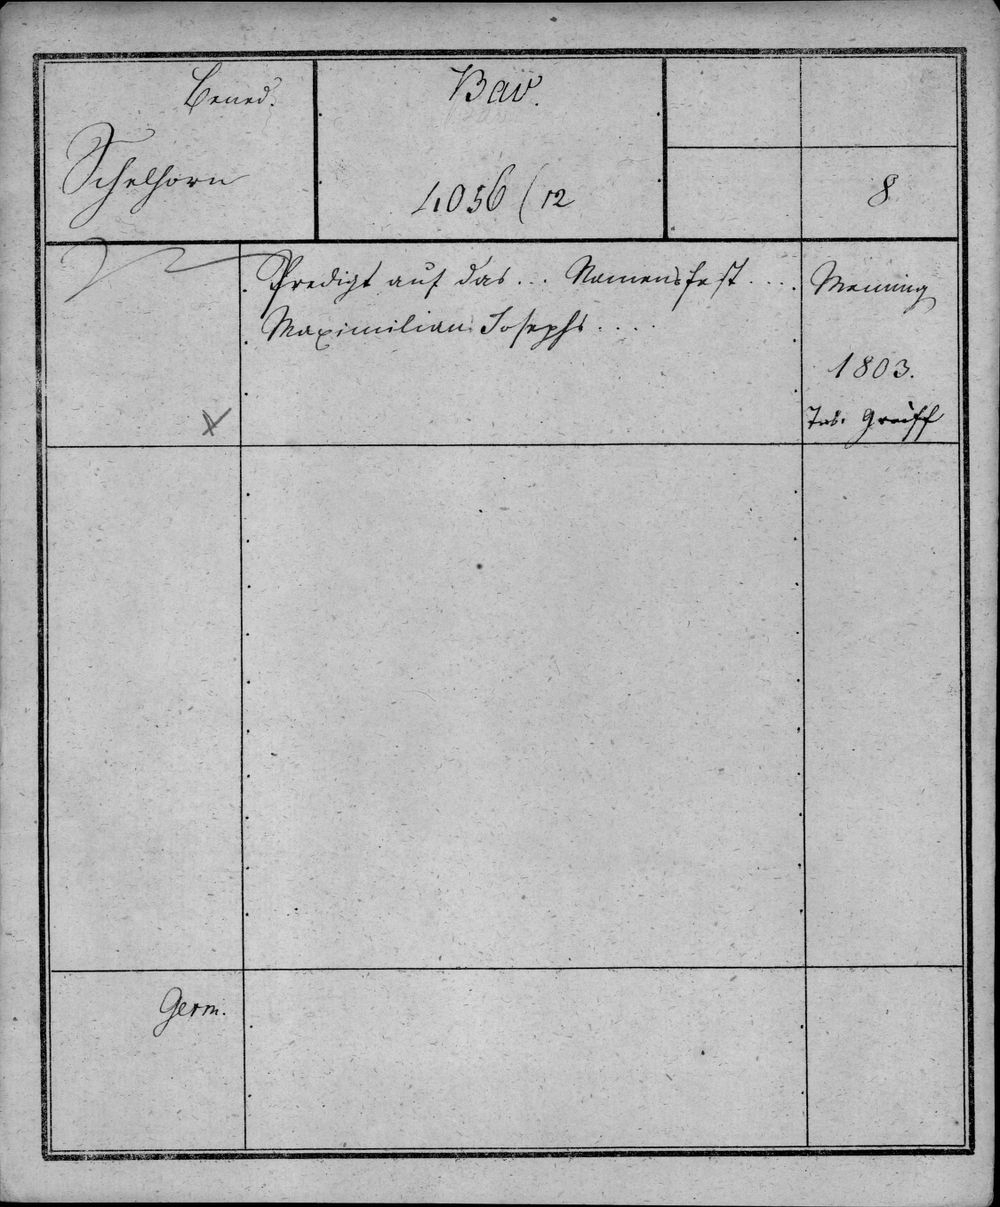 Bened.
Schelhorn
Bav.
4056 (12
8
Predigt auf das... Namensfest....
Maximilian Josephs....
Memming
1803.
Greiff
Germ.